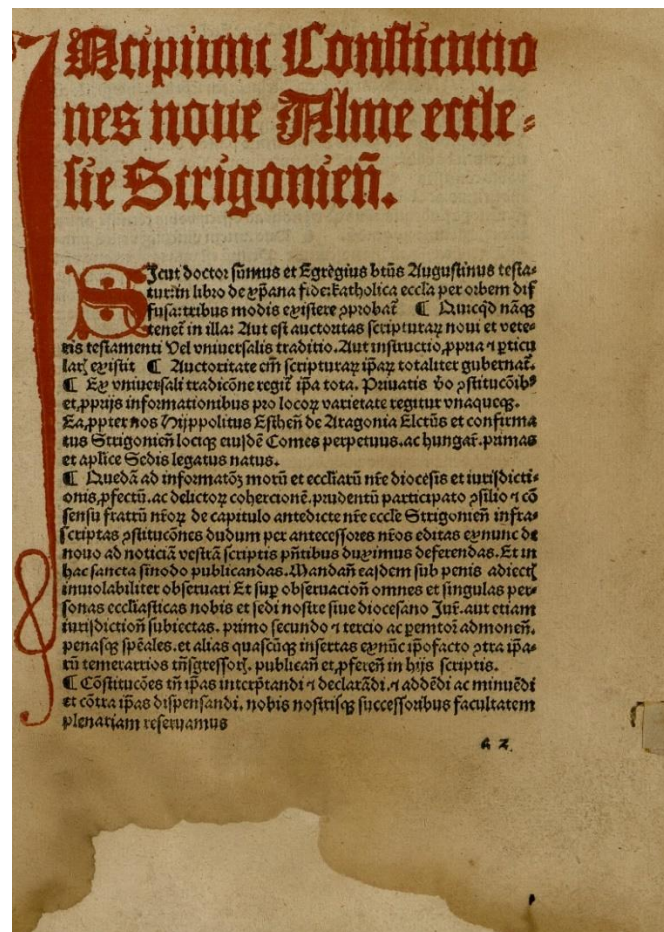 INcipiunt Constitutio
nes noue Alme eccle-
sie Strigonieñ.
SIcut doctor sūmus et Egregius btūs Augustinus testa-
tur: in libro de xp̄ana fide: katholica eccl̄a per orbem dif
fusa: tribus modis existere ꝓbat̄ ¶ Quicq̄d nāqꝫ
tenet̄ in illa: Aut est auctoritas scripturaꝝ noui et vete-
ris testamenti Vel vniuersalis traditio. Aut instructio, ꝓpria ⁊ ꝑticu
larꝭ existit ¶ Auctoritate em̄ scripturaꝝ ip̄aꝝ totaliter gubernat̄.
¶ Ex vniuersali tradicōne regit̄ ip̄a tota. Priuatis v̄o ꝯstitucōibꝰ
et, ꝓprijs informationibus pro locoꝝ varietate regitur vnaqueqꝫ.
Ea, ꝓpter nos Hijppolitus Esthen̄ de Aragonia Elctūs et confirma
tus Strigonien̄ lociqꝫ eiusdē Comes perpetuus. ac hungar̄. primas
et aplice Sedis legatus natus.
¶ Quedā ad informatōꝫ morū et eccl̄iarū nr̄e diocesis et iurisdicti-
onis, ꝓfectū. ac delictoꝝ cohercionē. prudentū participato ꝯsilio ⁊ cō
sensu fratrū nr̄oꝝ de capitulo antedicte nr̄e eccl̄e Strigonien̄ infra-
scriptas ꝯstitucōnes dudum per antecessores nr̄os editas exnunc de
nouo ad noticiā vestrā scriptis pn̄tibus duximus deferendas. Et in
hac sancta sinodo publicandas. Mandan̄ easdem sub penis adiectꝭ
inuiolabiliter obseruari Et suꝑ obseruacion̄ omnes et singulas per-
sonas eccl̄iasticas nobis et sedi nostre siue diocesano Iur̄. aut etiam
iurisdiction̄ subiectas. primo secundo ⁊ tercio ac ꝑemtor̄ admonen̄.
penasqꝫ sp̄eales. et alias quascūqꝫ insertas exnūc ip̄ofacto ꝯtra ip̄a-
rū temerarrios tn̄sgressorꝭ. publican̄ et, ꝓferen̄ in hijs scriptis.
¶ Cōstitucōes tn̄ ip̄as interp̄tandi ⁊ declarādi. ⁊ addēdi ac minuēdi
et cōtra ip̄as dispensandi. nobis nostrisqꝫ successoribus facultatem
plenariam reseruamus
a 2.